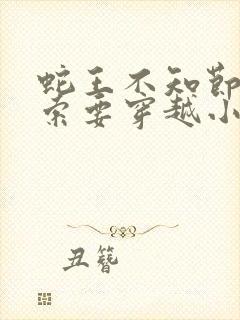 蛇王不知节
索要穿越小
丑簪